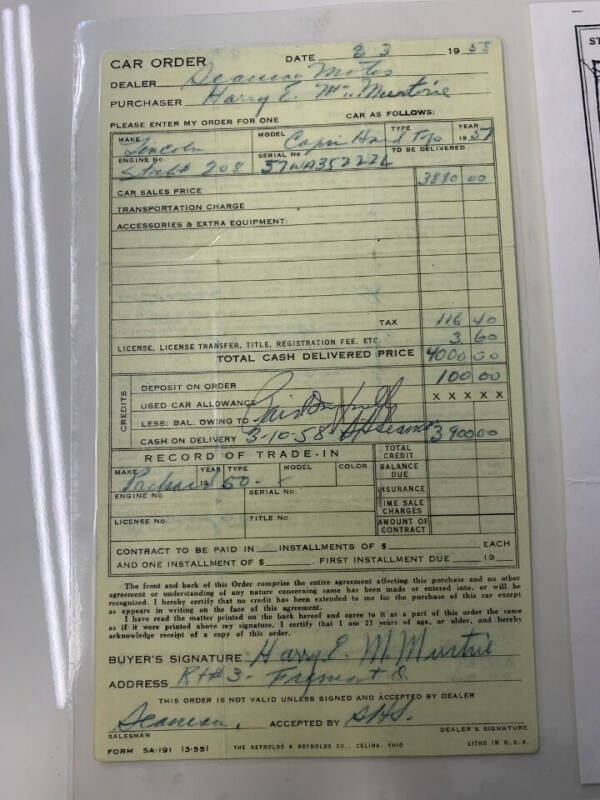 CAR ORDER DATE 3 3 1958
DEALER Seaman Motors
PURCHASER Harry E. McMurtrie
PLEASE ENTER MY ORDER FOR ONE CAR AS FOLLOWS:
MAKE Lincoln MODEL Capri Hard Top TYPE YEAR 1957
ENGINE No. Stock# 208 SERIAL No. 57WA35222L TO BE DELIVERED
CAR SALES PRICE 3880 00
TRANSPORTATION CHARGE
ACCESSORIES & EXTRA EQUIPMENT:
TAX 116 40
LICENSE, LICENSE TRANSFER, TITLE, REGISTRATION FEE, ETC. 3.60
TOTAL CASH DELIVERED PRICE 4000 00
CREDITS
DEPOSIT ON ORDER 100 00
USED CAR ALLOWANCE X X X X X
LESS: BAL. OWING TO Paid In Full
CASH ON DELIVERY 3-10-58 3900 00
RECORD OF TRADE-IN TOTAL CREDIT
MAKE Packard YEAR 1950 TYPE MODEL COLOR BALANCE DUE
ENGINE No. SERIAL No. INSURANCE
TIME SALE CHARGES
LICENSE No. TITLE No. AMOUNT OF CONTRACT
CONTRACT TO BE PAID IN ___ INSTALLMENTS OF $ ___ EACH
AND ONE INSTALLMENT OF $ ___. FIRST INSTALLMENT DUE ___ 19__
The front and back of this Order comprise the entire agreement affecting this purchase and no other
agreement or understanding of any nature concerning same has been made or entered into, or will be
recognized. I hereby certify that no credit has been extended to me for the purchase of this car except
as appears in writing on the face of this agreement.
I have read the matter printed on the back hereof and agree to it as a part of this order the same
as if it were printed above my signature. I certify that I am 21 years of age, or older, and hereby
acknowledge receipt of a copy of this order.
BUYER'S SIGNATURE Harry E. McMurtrie
ADDRESS Rt#3 - Fremont O.
THIS ORDER IS NOT VALID UNLESS SIGNED AND ACCEPTED BY DEALER
Seaman. ACCEPTED BY SHS.
SALESMAN DEALER'S SIGNATURE
FORM SA-191 (3-55) THE REYNOLDS & REYNOLDS CO., CELINA, OHIO LITHO IN U.S.A.